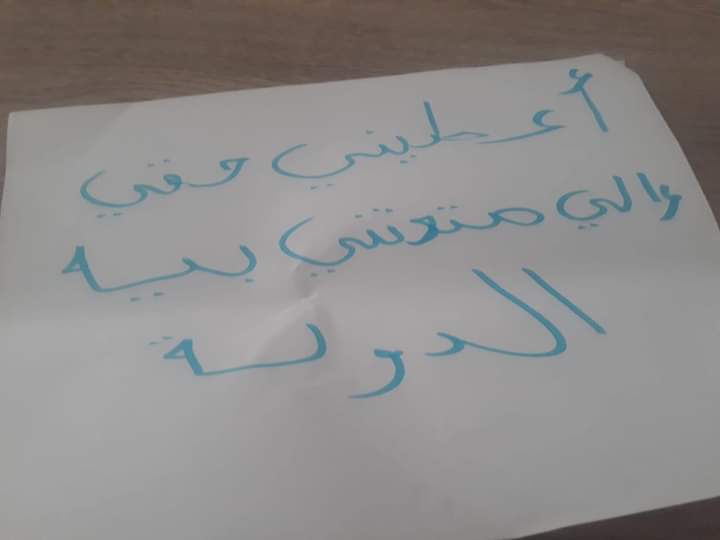 أعطيني حقي
والي متعتني بيه
الدولة